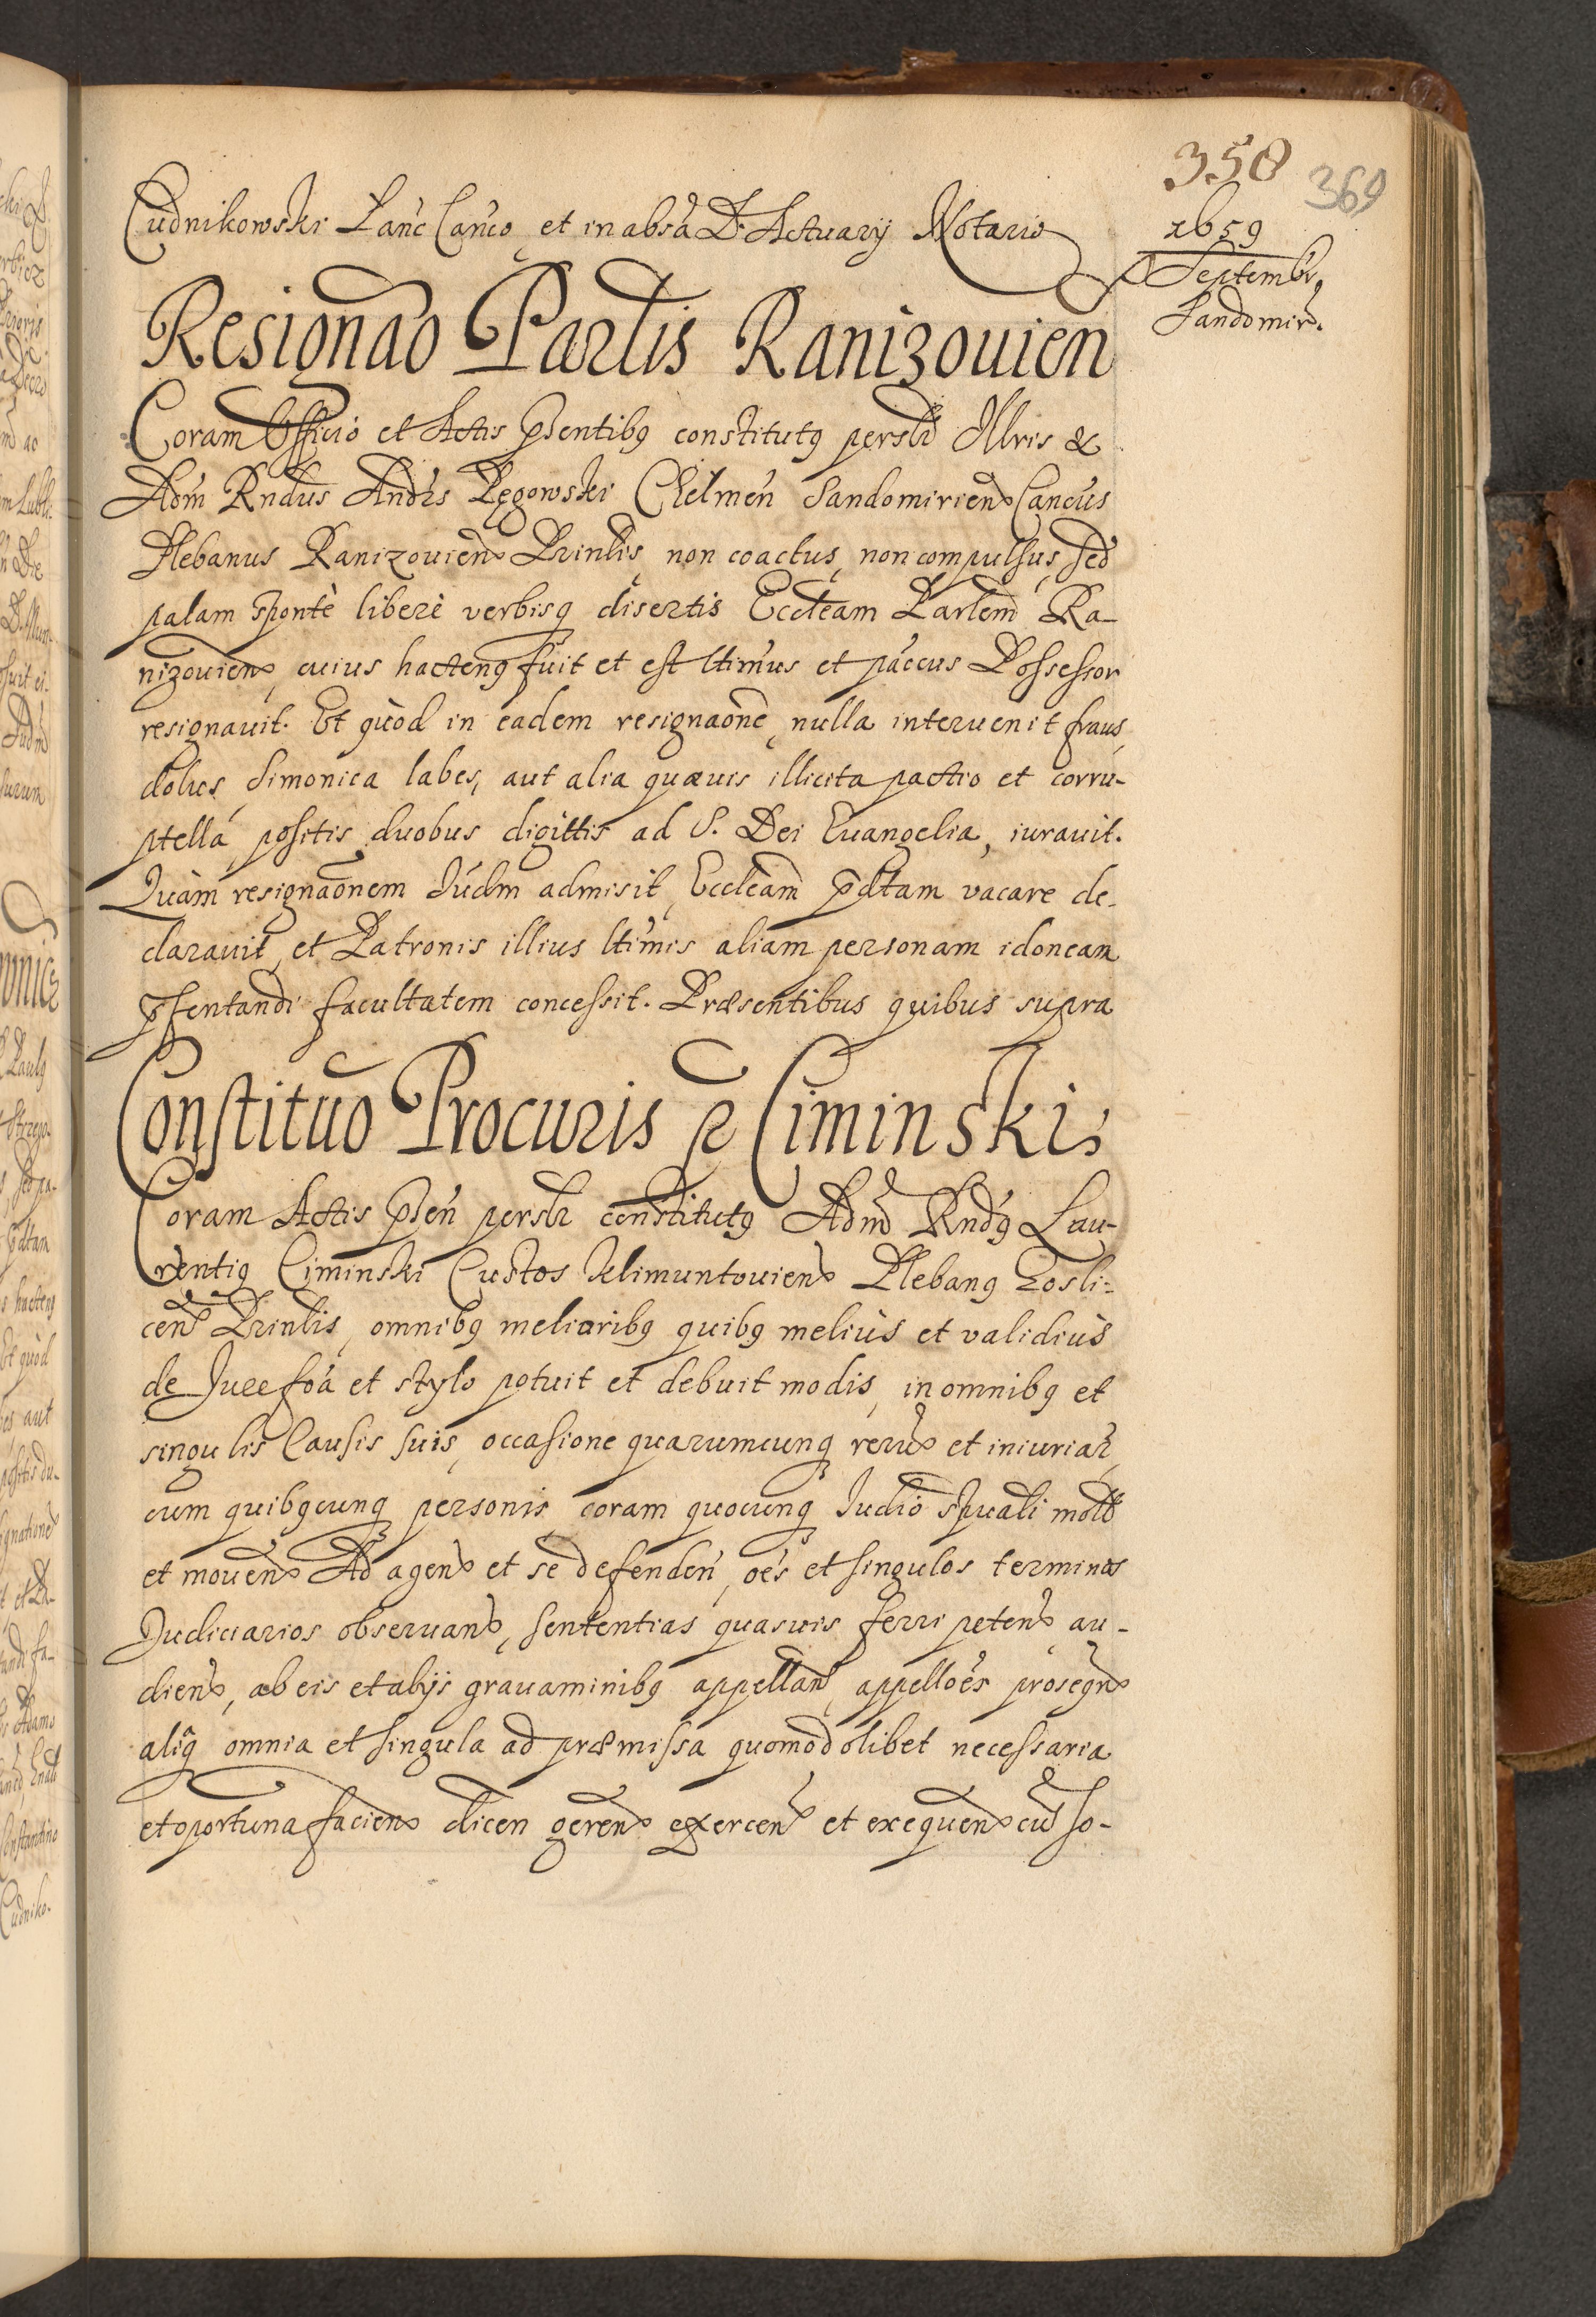 358
369
1659
Septembr.
Sandomir.
Cudnikowski Lanc Canco, et in absa D. Actuarij Notario
Resignao Partis Ranizouien
Coram Officio et Actis pñtibq constitutq persłr Illris &
Adm Rndus Andrs Pęgowski Chelmen Sandomirien Cancus
Plebanus Ranizouien Prinlis, non coactus, non compulsus, sed
palam sponte libere verbisq disertis Eccleam Parlem Ra-
nizouien, cuius hactenq fuit et est ltimus et paccus Possessor
resignauit. Et quod in eadem resignaone, nulla interuenit fraus,
dolus, simonica labes, aut alia quæuis illicita pactio et corru-
ptella, positis duobus digittis ad S. Dei Euangelia, iurauit.
Quam resignaonem Iudm admisit, Eccleam pdtam vacare de-
clarauit, et Patronis illius ltimis aliam personam idonean
pſentandi facultatem concessit. Præsentibus quibus supra
Constituo Procuris p Ciminski,
Coram Actis pñen persłr constitutq Adm Rndq Lau-
rentiq Ciminski Custos Klimuntouien Plebanq Gosli-
cen Prinlis, omnibq melioribq quibq melius et validius
de Iure foa et stylo potuit et debuit modis, in omnibq et
singulis Causis suis, occasione quarumcunq rerum et iniuriar,
cum quibqcunq personis, coram quocunq Iudio spuali mott
et mouen Ad agen et se defenden, oes et singulos terminos
Iudiciarios obseruan, sententias quasuis ferri peten, au-
dien, ab eis et alijs grauaminibq appellan, appelloes prosequn
aliaq omnia et singula ad præmissa quomodolibet necessaria
et oportuna facien dicen geren exercen et exequen cum so-